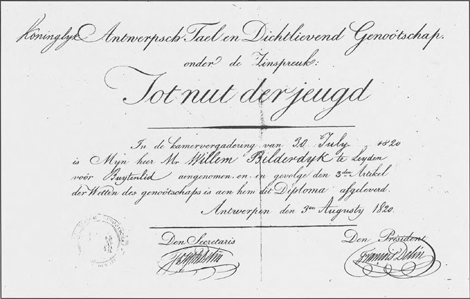 Koninglyk Antwerpsch Tael en Dichtlievend Genoótschap.
onder de Zinspreuk:
Tot nut der jeugd
In de kamervergadering van 30 July 1820
is Mijn heer Mr Willem Bilderdyk te Leyden
voór Buytenlid aengenomen en in gevolge den 5den Artikel
der Wetten des genoótschaps is aen hem dit Diploma afgeleverd.
Antwerpen den 3en Augusty 1820.
Den Secretaris
Den President